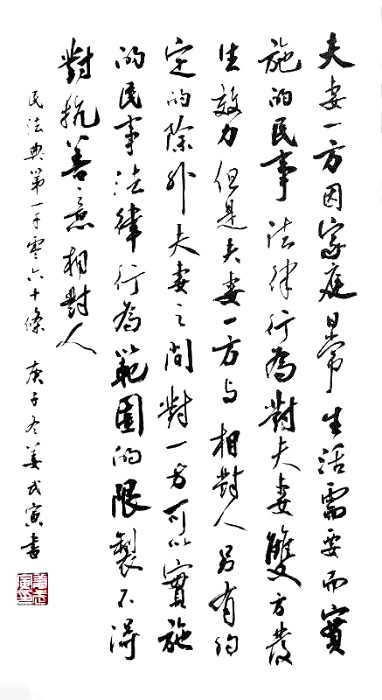 夫妻一方因家庭日常生活需要而實
施的民事法律行為對夫妻雙方發
生效力但是夫妻一方与相對人另有約
定的除外夫妻之間對一方可以實施
的民事法律行為範圍的限製不得
對抗善意相對人
民法典第一千零六十條 庚子冬姜武寅書